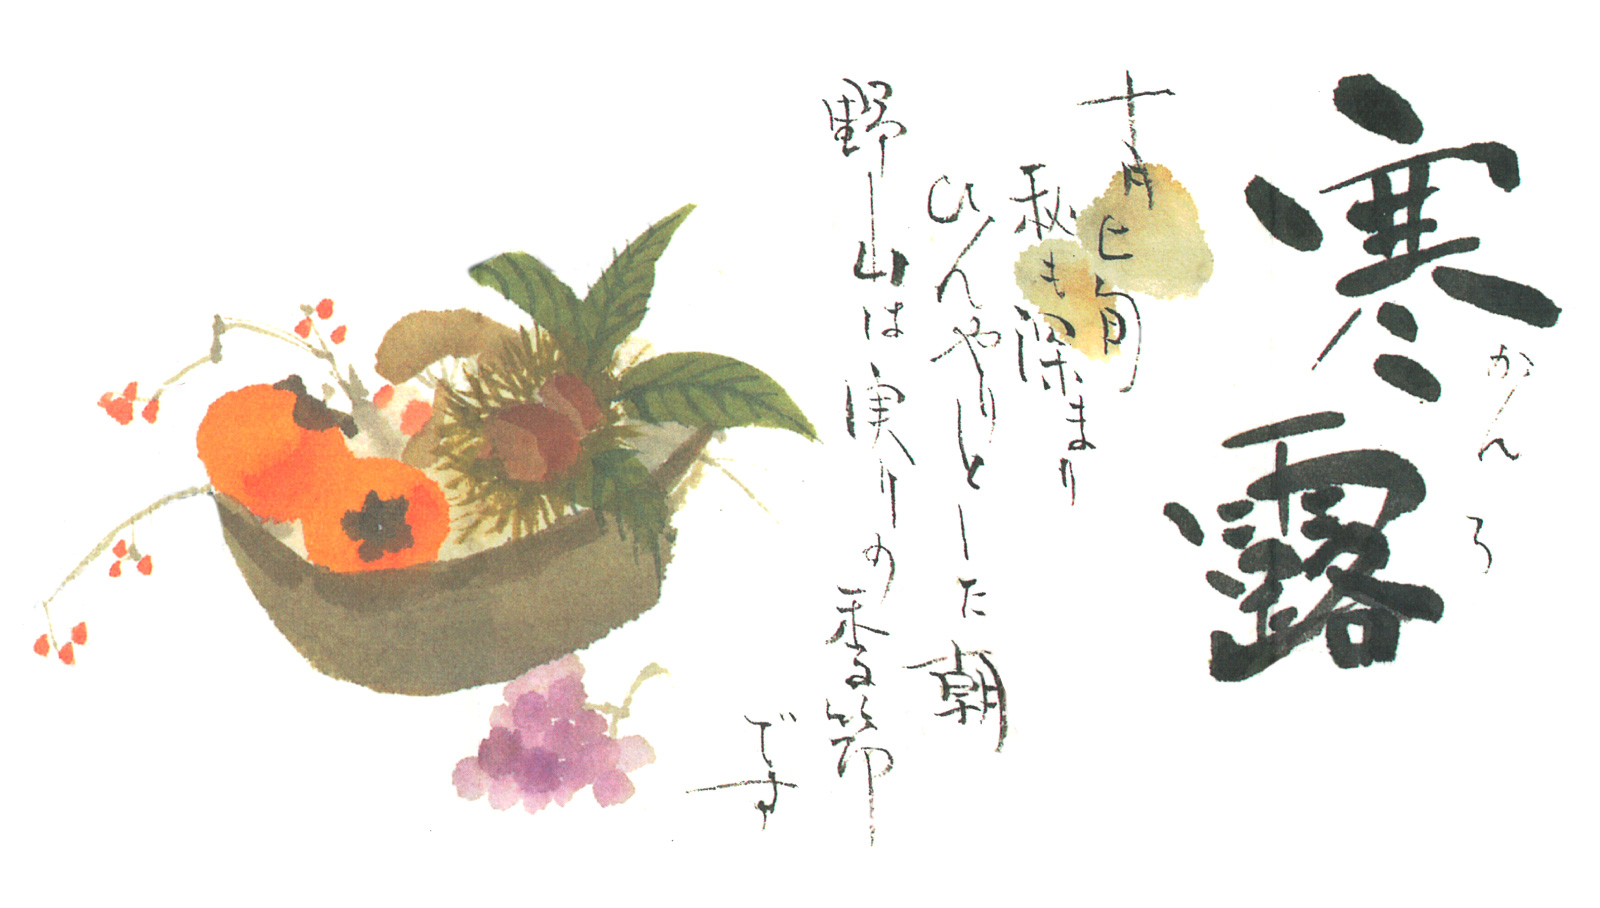 寒露
かんろ
十月上旬
秋も深まり
ひんやりとした朝
野山は実りの季節
です